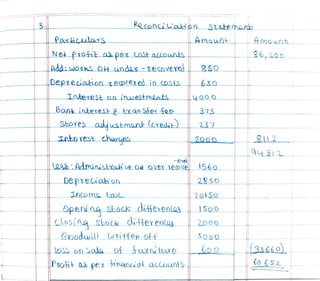 3. Reconciliation Statement
Particulars Amount Amount
Net Profit as per cost accounts 86,200
Add: works OH under-recovered 850
Depreciation recovered in costs 650
Interest on investments 4000
Bank interest & transfer fee 375
Stores adjustment (credit) 237
Interest charges 2000 8112
94312
Less: Administrative OH over 1560
Depreciation 2850
Income tax 20150
Opening stock differences 1500
Closing stock differences 2000
Goodwill written off 5000
loss on sale of furniture 600 (33660)
Profit as per financial accounts 60652